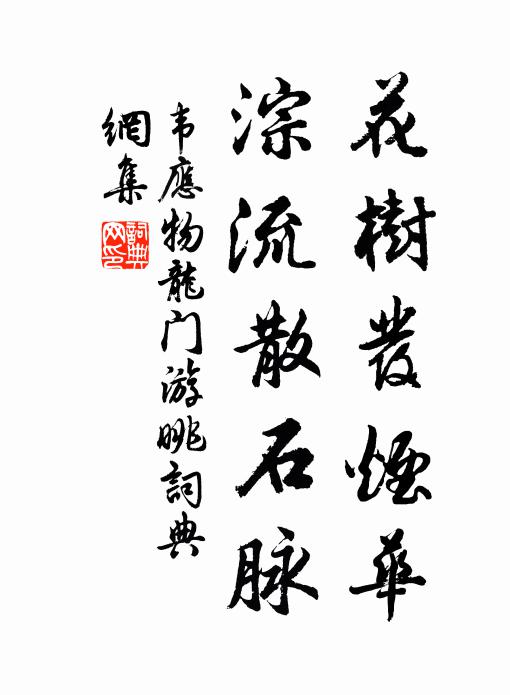 花樹發煙華
淙流散石脉
韦應物龍门游眺詞典
網集
詞典
网印